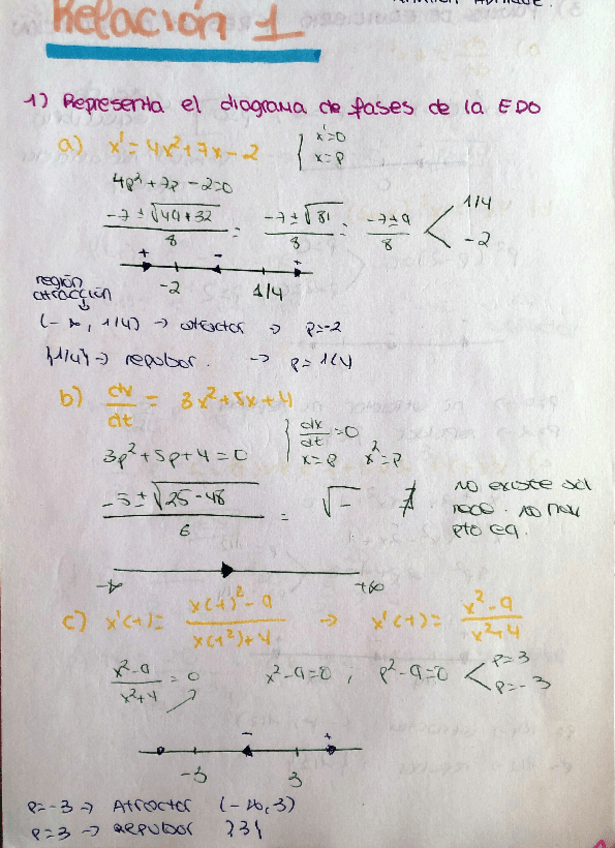 Relación 1
1) Representa el diagrama de fases de la EDO
a) x' = 4x² + 7x - 2 { x'=0
x=p
4p² + 7p - 2 = 0
-7 ± √49+32 / 8 = -7 ± √81 / 8 = -7 ± 9 / 8 < 1/4
-2
+ - +
-2 1/4
región
atracción
(-∞, 1/4) → atractor → p=-2
{1/4} → repulsor. → p = 1/4
b) dx/dt = 3x² + 5x + 4
{ dx/dt = 0
x=p x²=p
3p² + 5p + 4 = 0
-5 ± √25-48 / 6 = √- ∄
no existe sol
no hay
pto eq.
-∞ +∞
c) x'(t) = x(t)² - 9 / x(t²) + 4 → x'(t) = x² - 9 / x² + 4
x²-9 / x²+4 = 0 x²-9=0 ; p²-9=0 < p=3
p=-3
- +
-3 3
p=-3 → Atractor (-∞,3)
p=3 → Repulsor {3}